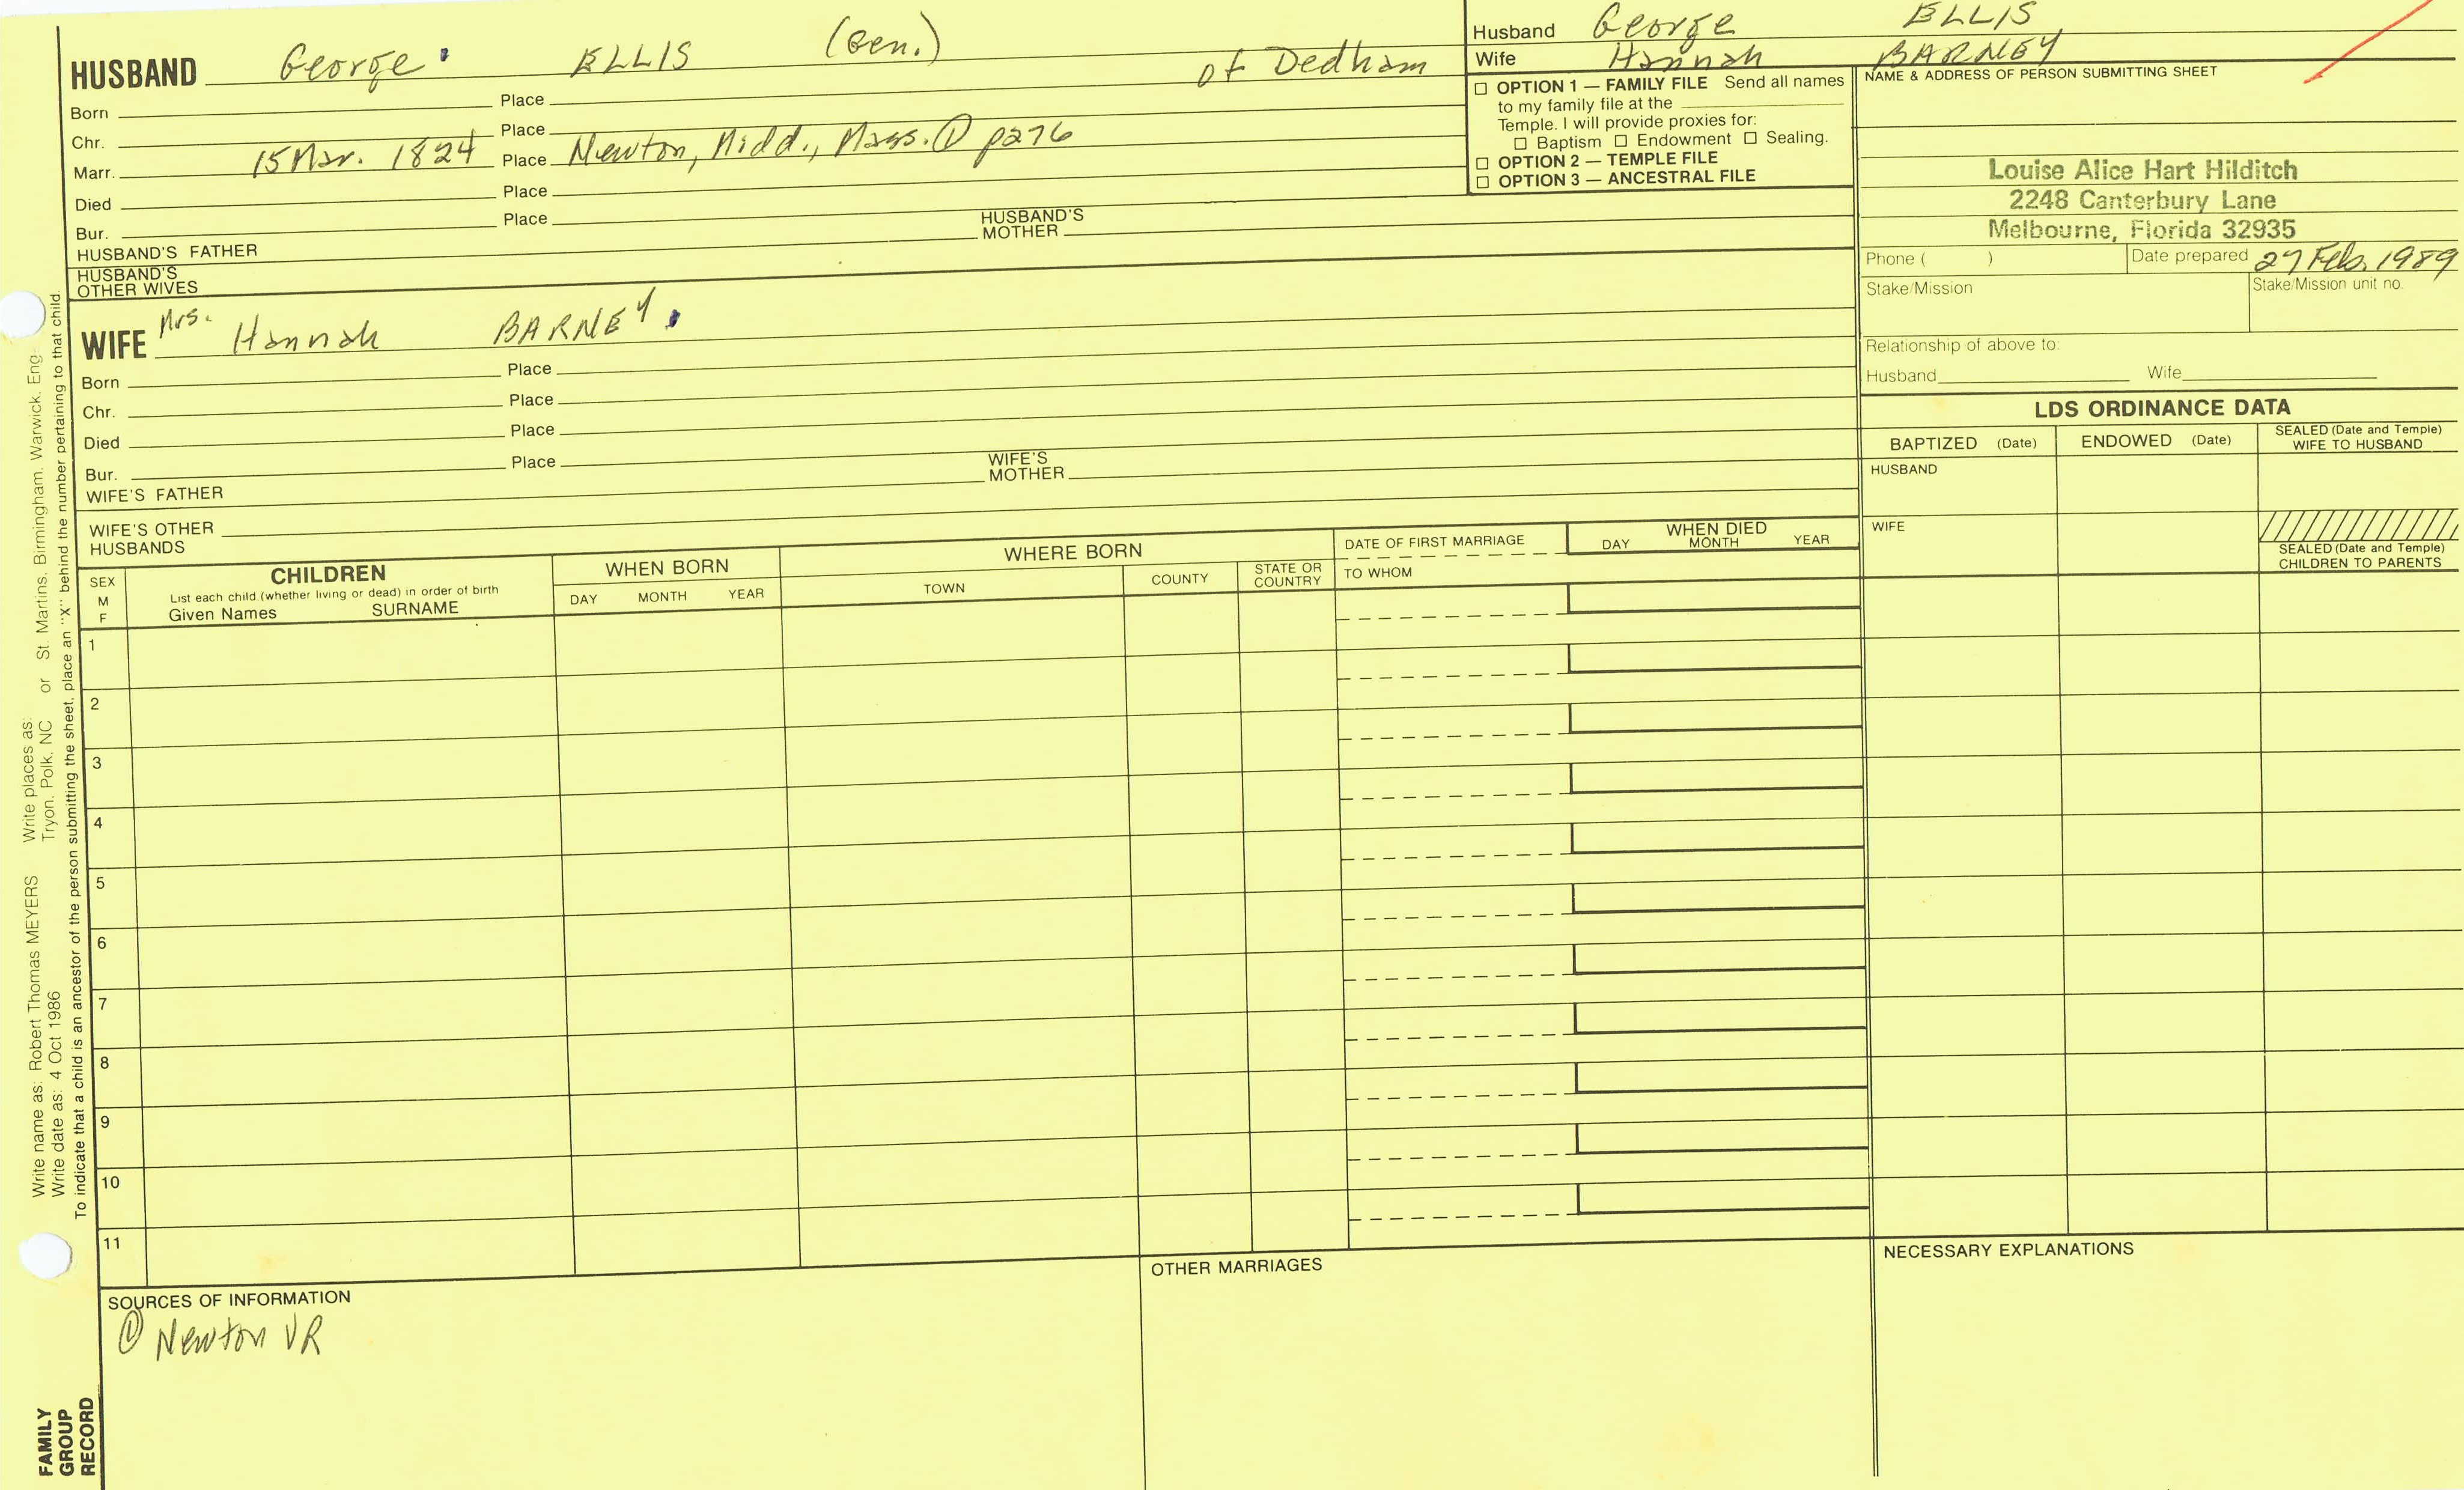 HUSBAND George ELLIS (Gen.) of Dedham
Born Place
Chr. Place
Marr. 15 Mar. 1824 Place Newton, Midd., Mass. ① p276
Died Place
Bur. Place
HUSBAND'S FATHER HUSBAND'S MOTHER
HUSBAND'S OTHER WIVES
WIFE Mrs. Hannah BARNEY.
Born Place
Chr. Place
Died Place
Bur. Place
WIFE'S FATHER WIFE'S MOTHER
WIFE'S OTHER HUSBANDS
Husband George ELLIS
Wife Hannah BARNEY
☐ OPTION 1 — FAMILY FILE Send all names
to my family file at the
Temple. I will provide proxies for:
☐ Baptism ☐ Endowment ☐ Sealing.
☐ OPTION 2 — TEMPLE FILE
☐ OPTION 3 — ANCESTRAL FILE
NAME & ADDRESS OF PERSON SUBMITTING SHEET
Louise Alice Hart Hilditch
2248 Canterbury Lane
Melbourne, Florida 32935
Phone ( ) Date prepared 27 Feb. 1989
Stake/Mission Stake/Mission unit no.
Relationship of above to:
Husband Wife
LDS ORDINANCE DATA
BAPTIZED (Date) ENDOWED (Date) SEALED (Date and Temple) WIFE TO HUSBAND
HUSBAND
WIFE
SEALED (Date and Temple)
CHILDREN TO PARENTS
SEX M F
CHILDREN
List each child (whether living or dead) in order of birth
Given Names SURNAME
WHEN BORN
DAY MONTH YEAR
WHERE BORN
TOWN COUNTY STATE OR COUNTRY
DATE OF FIRST MARRIAGE
TO WHOM
WHEN DIED
DAY MONTH YEAR
1
2
3
4
5
6
7
8
9
10
11
SOURCES OF INFORMATION
① Newton VR
OTHER MARRIAGES
NECESSARY EXPLANATIONS
Write name as: Robert Thomas MEYERS Write places as: St. Martins, Birmingham, Warwick, Eng.
Write date as: 4 Oct 1986 Tryon, Polk, NC or
To indicate that a child is an ancestor of the person submitting the sheet, place an "X" behind the number pertaining to that child.
FAMILY
GROUP
RECORD